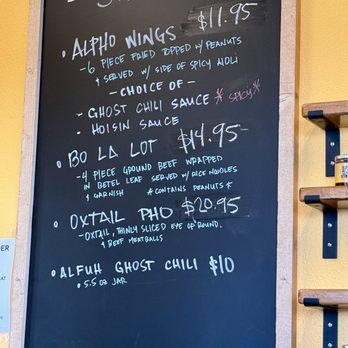 • ALPHO WINGS $11.95
-6 PIECE FRIED TOPPED W/ PEANUTS
& SERVED W/ SIDE OF SPICY AIOLI
-CHOICE OF-
- GHOST CHILI SAUCE *SPICY*
- HOISIN SAUCE
• BO LA LOT $14.95-
-4 PIECE GROUND BEEF WRAPPED
IN BETEL LEAF SERVED W/ RICE NOODLES
& GARNISH *CONTAINS PEANUTS*
• OXTAIL PHO $20.95
-OXTAIL, THINLY SLICED EYE OF ROUND,
& BEEF MEATBALLS
• ALFUH GHOST CHILI $10
• 5.5 OZ JAR